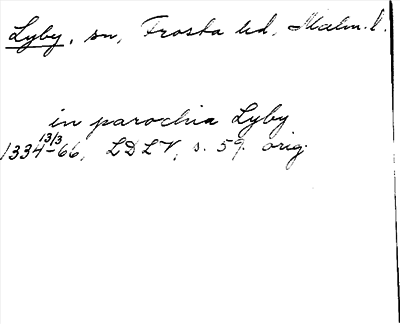 Lyby, sn, Frosta hd, Malm. l.
in parochia Lyby
13/3
1334-66, LDLV, s. 59. orig.